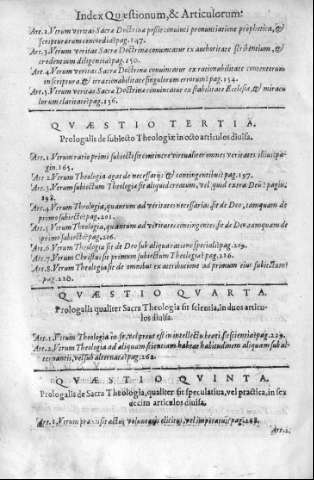 Index Quæstionum, & Articulorum.
Art. 2. Verum veritas Sacra Doctrina possit convinci pronuntiatione prophetica, &
scripturarum concordia? pag. 147.
Art. 3. Verum veritas Sacra Doctrina convincatur ex authoritate scribentium, &
credentium diligentia? pag. 150.
Art. 4. Verum veritas Sacra Doctrina convincatur ex rationabilitate contentorum
in scriptura, & irrationabilitate singulorum errorum? pag. 154.
Art. 5. Verum veritas Sacra Doctrina convincatur ex stabilitate Ecclesiæ, & miracu
lorum claritate? pag. 156.
QVÆSTIO TERTIA.
Prologalis de subiecto Theologiæ in octo articulos diuisa.
Art. 1. Verum ratio primi subiecti sit continere virtualiter omnes veritates illius? pa-
gin. 165.
Art. 2. Verum Theologia agat de necessarijs & contingentibus? pag. 197.
Art. 3. Verum subiectum Theologiæ sit aliquid creatum, vel quid extra Deum? pagin.
198.
Art. 4. Verum Theologia, quantum ad veritates necessarias sit de Deo, tamquam de
primo subiecto? pag. 201.
Art. 5. Verum Theologia, quantum ad veritates contingentes sit de Deo tamquam de
primo subiecto? pag. 216.
Art. 6. Verum Theologia sit de Deo sub aliqua ratione speciali? pag. 219.
Art. 7. Verum Christus sit primum subiectum Theologiæ? pag. 226.
Art. 8. Verum Theologia sit de omnibus ex attributione ad primum eius subiectum?
pag. 228.
QVÆSTIO QVARTA.
Prologalis qualiter Sacra Theologia sit scientia, in duos articu-
los diuisa.
Art. 1. Verum Theologia in se, vel prout est in intellectu beati sit scientia? pag. 229.
Art. 2. Verum Theologia ad aliquam scientiam habeat habitudinem aliquam subal-
ternantis, vel subalternatæ? pag. 262.
QVÆSTIO QVINTA.
Prologalis de Sacra Theologia, qualiter sit speculatiua, vel practica, in sex
decim articulos diuisa.
Art. 1. Verum praxis sit actus voluntatis elicitus, vel imperatus? pag. 268.
Art. 2.